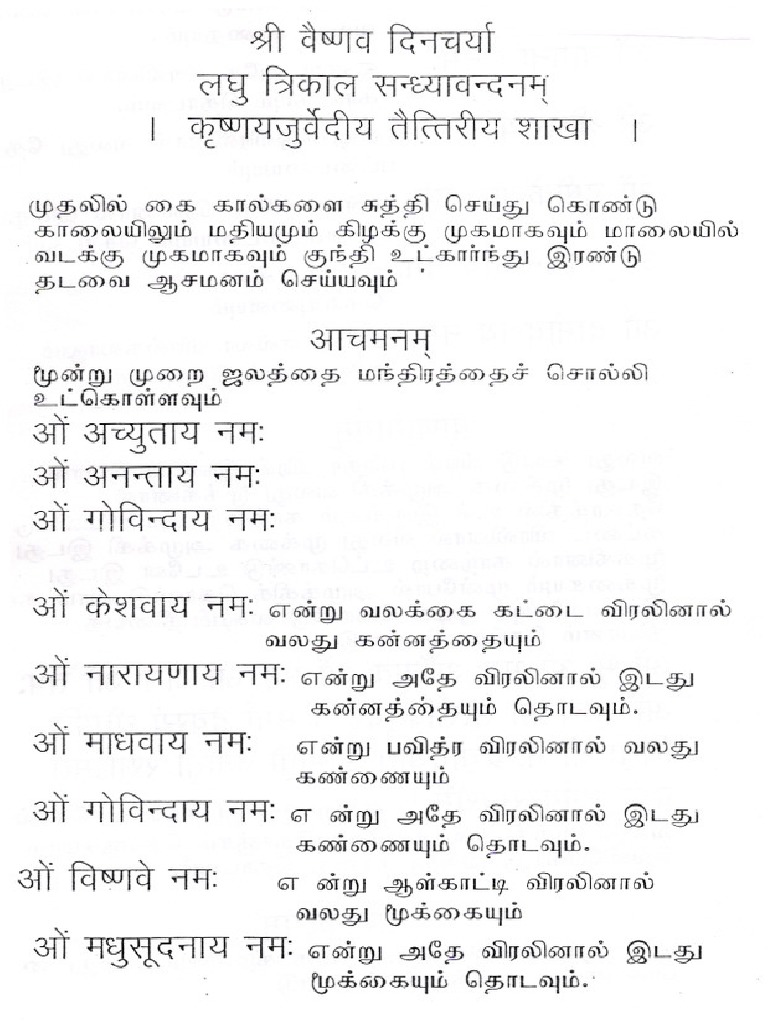 श्री वैष्णव दिनचर्या
लघु त्रिकाल सन्ध्यावन्दनम्
। कृष्णयजुर्वेदीय तैत्तिरीय शाखा ।
முதலில் கை கால்களை சுத்தி செய்து கொண்டு
காலையிலும் மதியமும் கிழக்கு முகமாகவும் மாலையில்
வடக்கு முகமாகவும் குந்தி உட்கார்ந்து இரண்டு
தடவை ஆசமனம் செய்யவும்
आचमनम्
மூன்று முறை ஜலத்தை மந்திரத்தைச் சொல்லி
உட்கொள்ளவும்
ओं अच्युताय नमः
ओं अनन्ताय नमः
ओं गोविन्दाय नमः
ओं केशवाय नमः என்று வலக்கை கட்டை விரலினால்
வலது கன்னத்தையும்
ओं नारायणाय नमः என்று அதே விரலினால் இடது
கன்னத்தையும் தொடவும்.
ओं माधवाय नमः என்று பவித்ர விரலினால் வலது
கண்ணையும்
ओं गोविन्दाय नमः எ ன்று அதே விரலினால் இடது
கண்ணையும் தொடவும்.
ओं विष्णवे नमः எ ன்று ஆள்காட்டி விரலினால்
வலது மூக்கையும்
ओं मधुसूदनाय नमः என்று அதே விரலினால் இடது
மூக்கையும் தொடவும்.